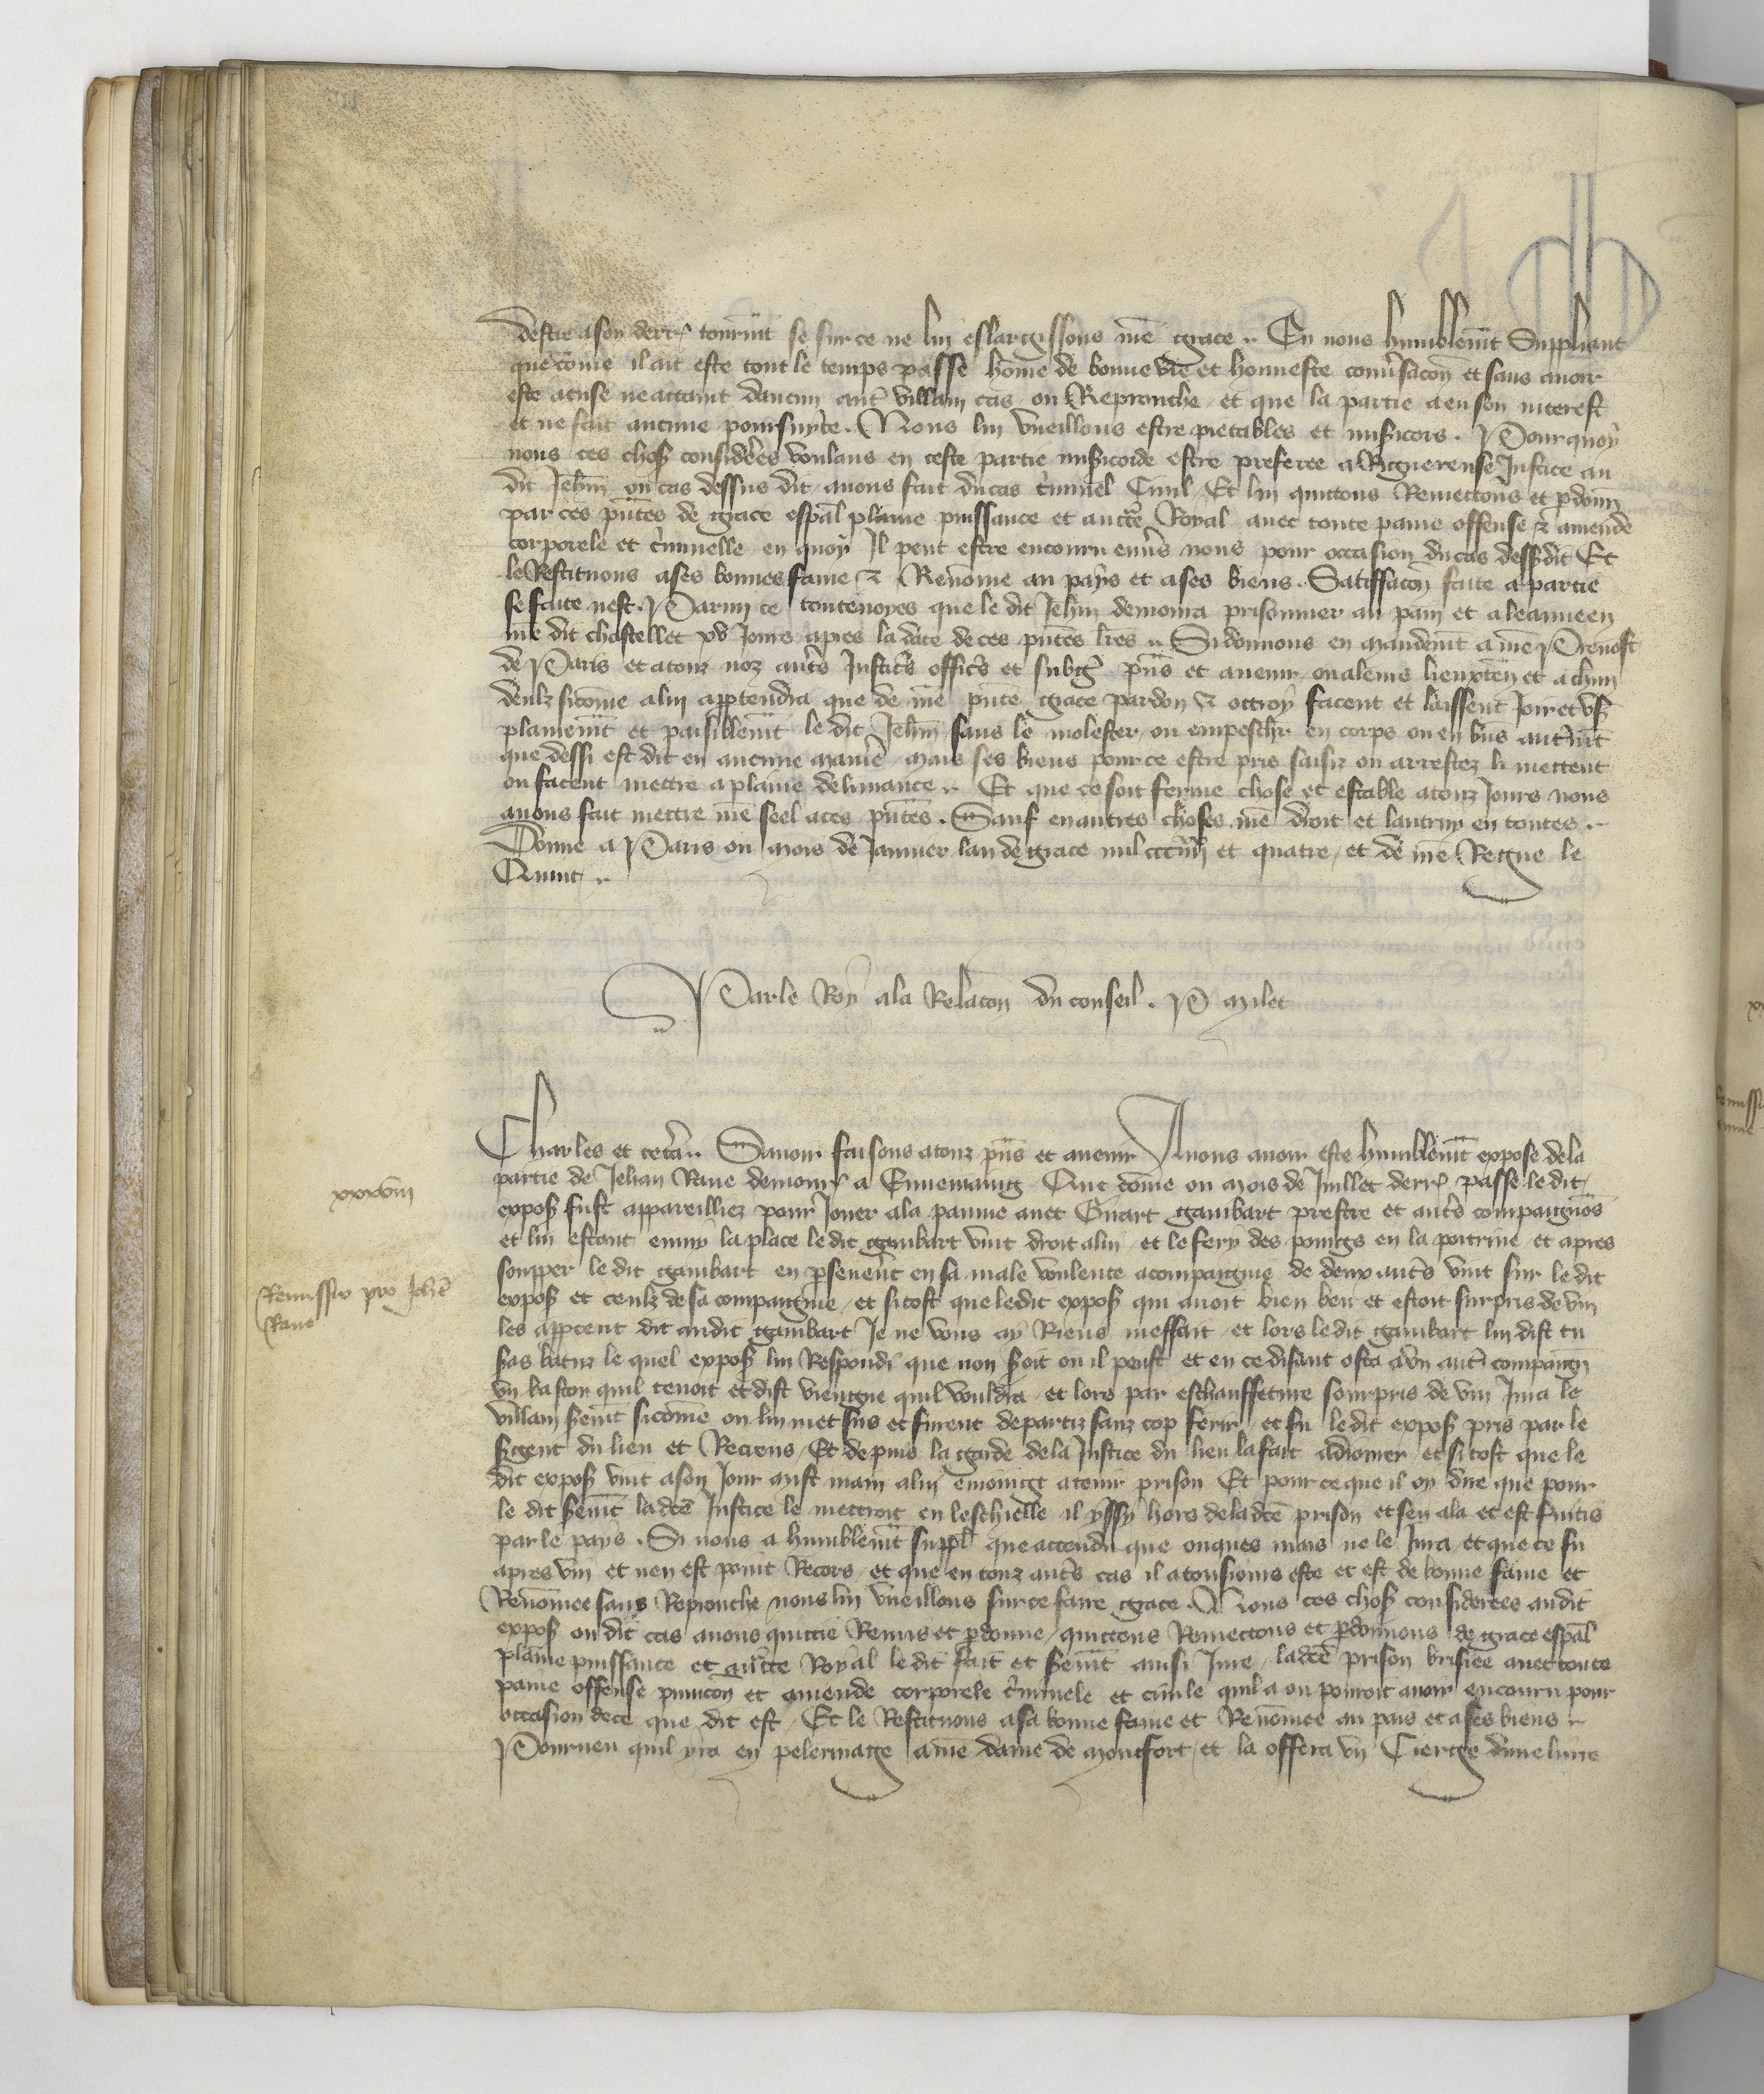 destre a son derr. tourmt se sur ce ne lui eslargissons nre grace. En nous humblemt Suppliant
que come il ait este tout le temps passe home de bonne vie et honneste convsacon et sans avoir
este acuse ne attaint daucun autre villain cas ou Reprouche et que la partie a eu son interest
et ne fait aucune poursuyte. Nous lui vueillons estre pietables et misicors. Pourquoy
nous ces choses considerees voulans en ceste partie misicorde estre preferee a Riguereuse Justice au
dit Jehan ou cas dessus dit avons fait du cas criminel Civil Et lui quittons Remettons et pdonns
par ces pntes de grace espal plaine puissance et auctte Royal avec toute paine offense & amende
corporele et criminelle en quoy Il peut estre encouru envs nous pour occasion du cas dessdit Et
le Restituons a ses bonnes fame & Renomee au pays et a ses biens. Satiffacon faite a partie
se faite nest. Parmi ce toutevoyes que le dit Jehan demourra prisonnier au pain et a leaue en
nre dit chastellet xv Jours apres la date de ces pntes lres. Si donnons en mandemt a nre Prevost
de Paris et a touz noz autres Justicrs officrs et subgz pns et avenir ou a leurs lieuxten et a chun
deulz sicome a lui apptendra que de nre pnte grace pardon & ottroy facent et laissent Joir et user
plainemt et paisiblemt le dit Jehan sans le molester ou empescher en corps ou en bns autremt
que dessus est dit en aucune maniere mais ses biens pour ce estre pris saisiz ou arrestez li mettent
ou facent mettre a plaine delivrance. Et que ce soit ferme chose et estable a touz Jours nous
avons fait mettre nre seel a ces pntes. Sauf en autres choses nre droit et lautruy en toutes.
Donne a Paris ou mois de Janvier lan de grace mil ccciiiixx et quatre et de nre Regne le
Quint.
Par le Roy a la Relacon du conseil. P Milet
Charles et cetera. Savoir faisons a touz pns et avenir A nous avoir este humblemt expose de la
xxxviii
partie de Jehan Rave demour a Que come ou mois de Juillet derr passe le dit
expos fust appareilliez pour Jouer a la paume avec Girart gambart prestre et autres compaignos
et lui estant enmy la place le dit gambart vint droit a lui et le fery des poings en la poitrine et apres
Remissio pro Johe
Rave
soupper le dit gambart en psevert en sa male voulente acompaignie de deux autres vint sur le dit
expos et ceulz de sa compaignie et si tost que ledit expos qui avoit bien beu et estoit surpris de vin
les appceut dit audit gambart Je ne vous ay Riens meffait et lors le dit gambart lui dist tu
seras batuz le quel expos lui Respondi que non seroit ou il peust et en ce disant osta a un autre compaign
un baston quil tenoit et dist viengne qui vouldra et lors par eschauffeture sourpris de vin Jura le
villain seremt sicome on lui met sus et furent departiz sanz cop ferir et fu le dit expos pris par le
sergent du lieu et Recreus Et depuis la garde de la Justice du lieu la fait adiorner et si tost que le
dit expos vint a son Jour mist main a lui a tenir prison Et pour ce que il oy dire que pour
le dit seremt la dte Justice le mettroit en leschielle il yssy hors de la dte prison et sen ala et est fuitis
par le pays. Si nous a humblemt suppl que attendu que onques mais ne le Jura et que ce fu
apres vin et nen est point Recors et que en touz autres cas il a tousiours este et est de bonne fame et
Renomee sans Reprouche nous lui vueillons sur ce faire grace. Nous ces choses considerees au dit
expos ou dit cas avons quittie Remis et pdonne quittons Remettons et pdonnons de grace espal
plaine puissance et auctte Royal le dit fait et seremt ainsi Jure la dte prison brisiee avec toute
paine offense punicon et amende corporele criminele et civile quil a ou pourroit avoir encouru pour
occasion de ce que dit est Et le Restituons a sa bonne fame et Renomee au pais et a ses biens
Pourveu quil yra en pelerinage a nre dame de Montfort et la offera un Cierge dune livre